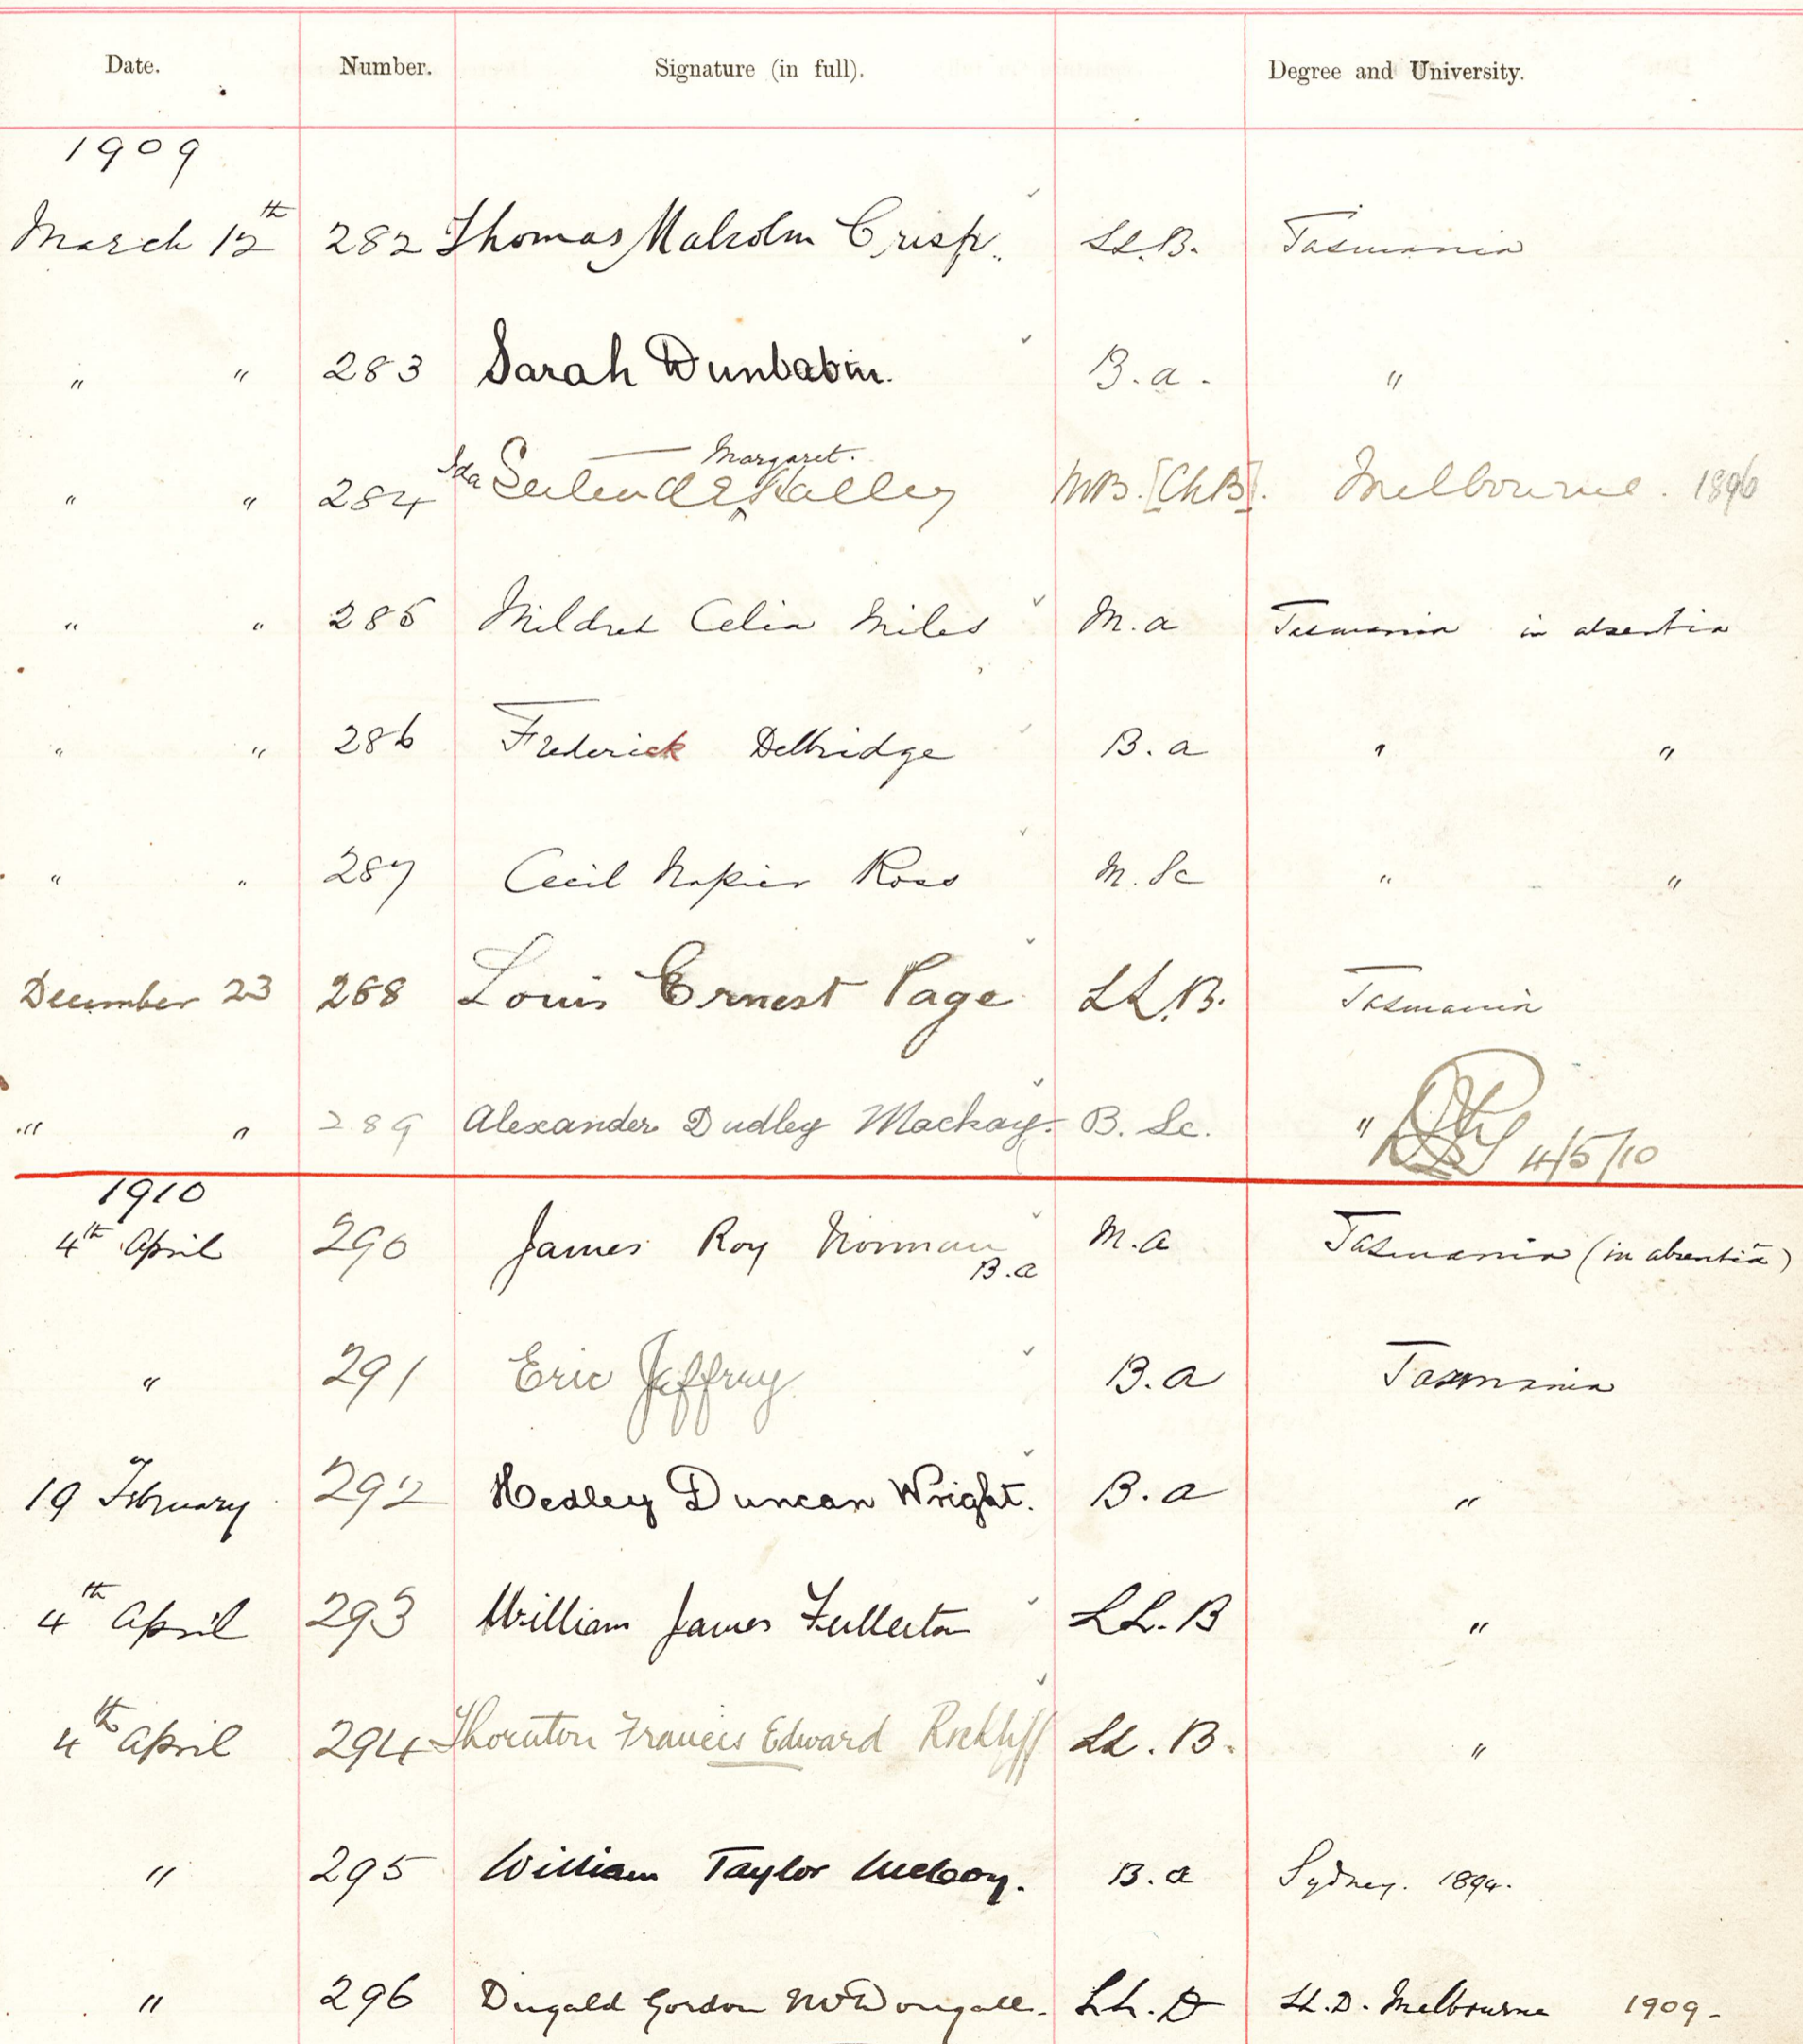 Date. Number. Signature (in full). Degree and University.
1909
March 12th 282 Thomas Malcolm Crisp. LL.B. Tasmania
" " 283 Sarah Dunbabin. B.a. "
Margaret.
" " 284 Ida Gertrude Halley MB.[ChB]. Melbourne. 1896
" " 285 Mildred Celia Miles M.a Tasmania in absentia
" " 286 Frederick Delbridge B.a " "
" " 287 Cecil Napier Ross M.Sc " "
December 23 288 Louis Ernest Page LL.B. Tasmania
" " 289 Alexander Dudley Mackay. B.Sc. " 4/5/10
1910
4th April 290 James Roy Norman M.a Tasmania (in absentia)
B.a
" 291 Eric Jeffrey B.a Tasmania
19 February 292 Hedley Duncan Wright. B.a "
4th April 293 William James Fullerton LL.B "
4th April 294 Thornton Francis Edward Rockliff LL.B. "
" 295 William Taylor McCoy. B.a Sydney. 1894.
" 296 Dugald Gordon McDougall. LL.D LL.D. Melbourne 1909-